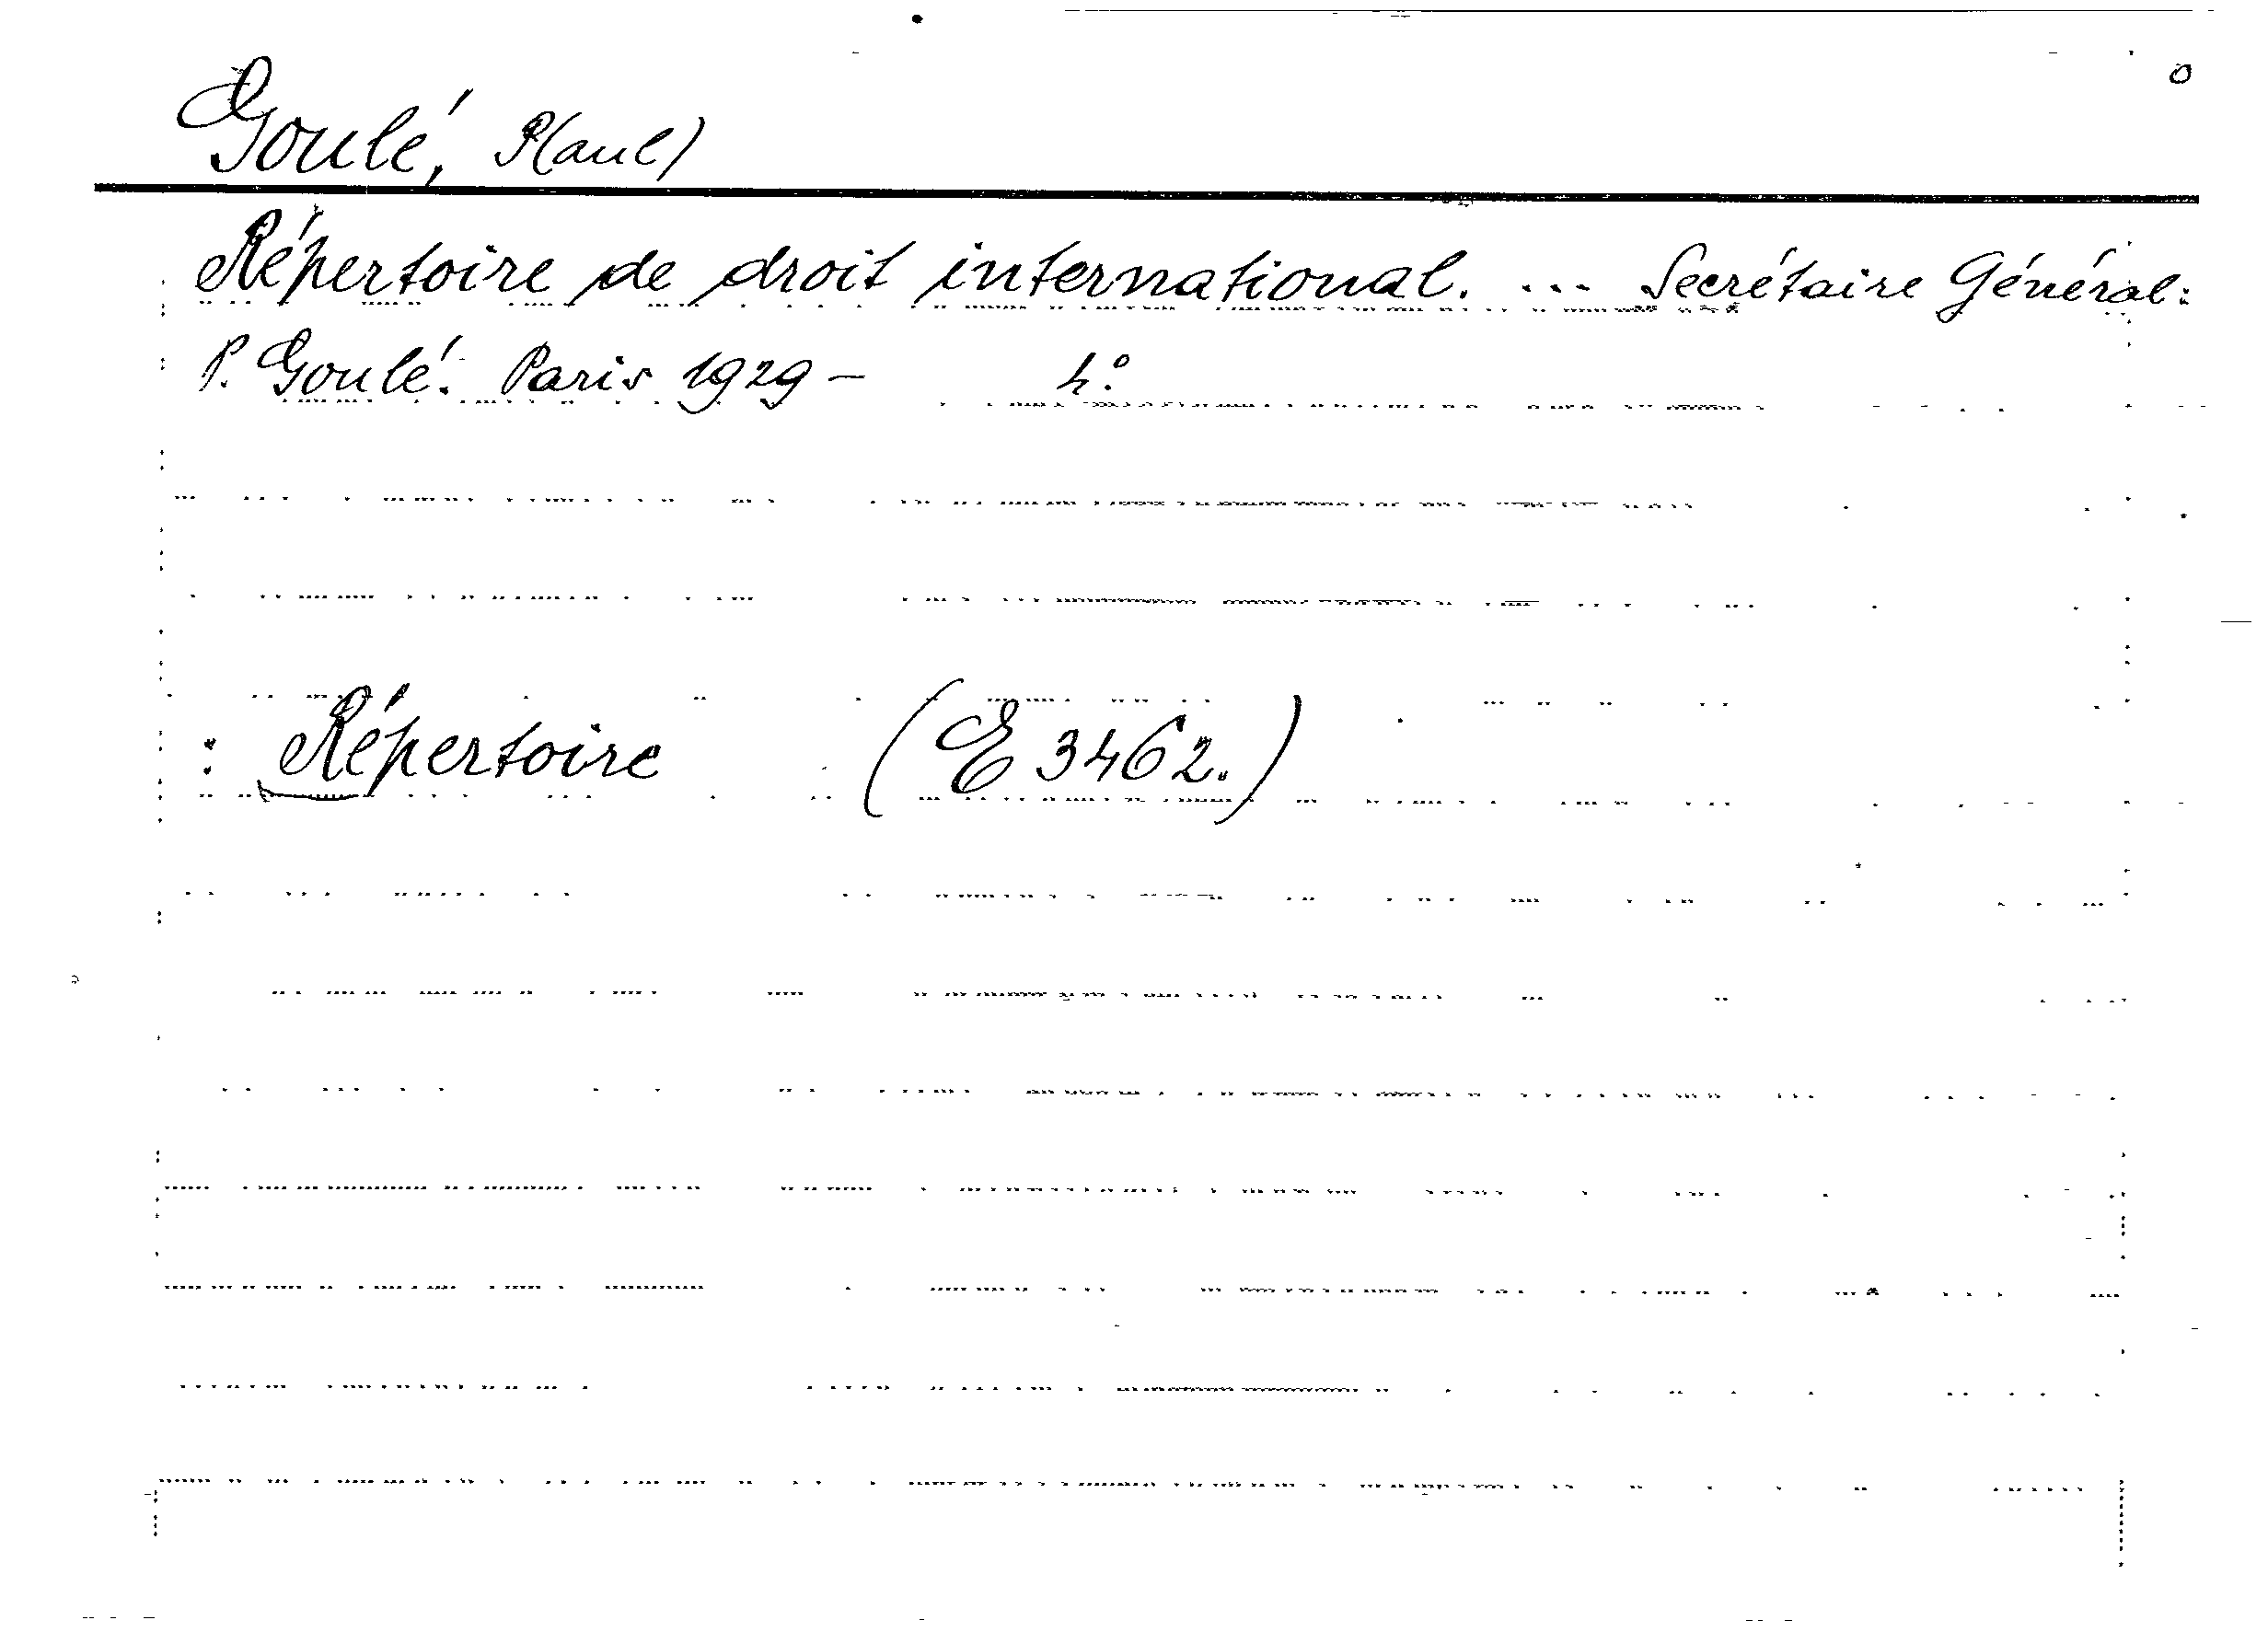 Goulé, P(aul)
Répertoire de droit international. ... Secrétaire Général:
P. Goulé. Paris 1929 – 4°.
: Répertoire (E 3462.)